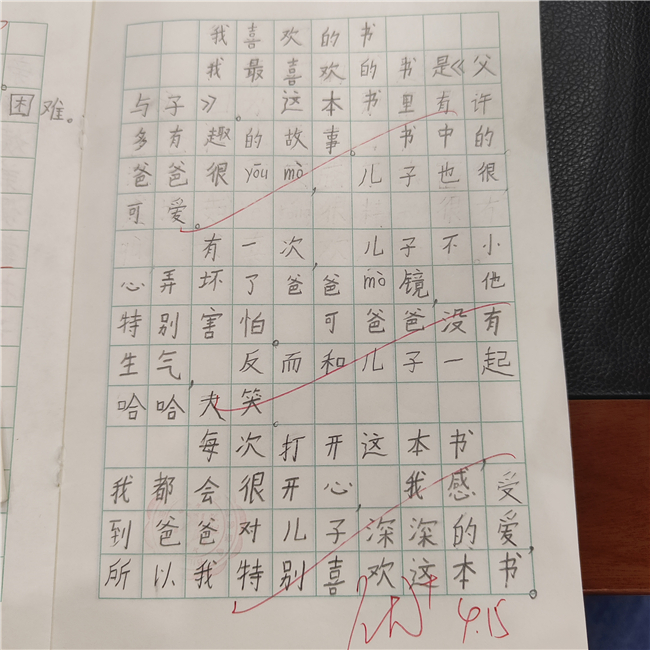 困难。
我喜欢的书
我最喜欢的书是《父
与子》。这本书里有许
多有趣的故事。书中的
爸爸很yōu mò,儿子也很
可爱。
有一次,儿子不小
心弄坏了爸爸mò镜,他
特别害怕。可爸爸没有
生气,反而和儿子一起
哈哈大笑。
每次打开这本书,
我都会很开心,我感受
到爸爸对儿子深深的爱,
所以我特别喜欢这本书。
4.15